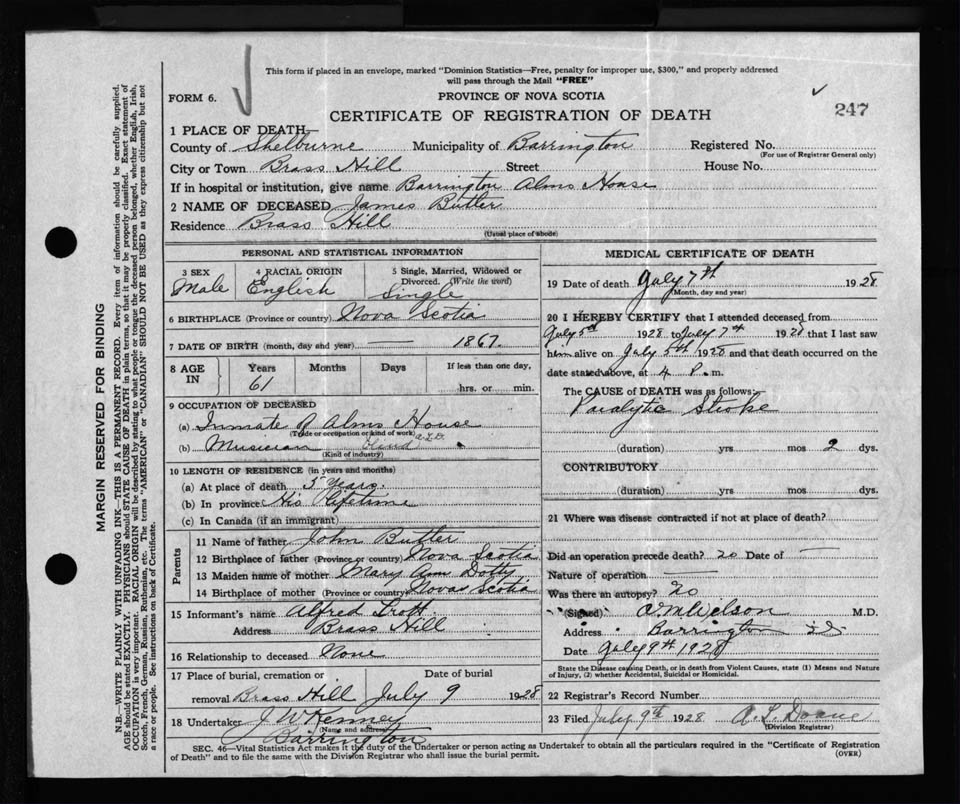 This form if placed in an envelope, marked "Dominion Statistics—Free, penalty for improper use, $300," and properly addressed
will pass through the Mail "FREE"
FORM 6.
PROVINCE OF NOVA SCOTIA
247
CERTIFICATE OF REGISTRATION OF DEATH
1 PLACE OF DEATH
County of Shelburne Municipality of Barrington Registered No.
(For use of Registrar General only)
City or Town Brass Hill Street House No.
If in hospital or institution, give name Barrington Alms House
2 NAME OF DECEASED James Butler
Residence Brass Hill
(Usual place of abode)
PERSONAL AND STATISTICAL INFORMATION
3 SEX 4 RACIAL ORIGIN 5 Single, Married, Widowed or
Divorced. (Write the word)
Male English Single
6 BIRTHPLACE (Province or country) Nova Scotia
7 DATE OF BIRTH (month, day and year) — 1867.
8 AGE IN Years Months Days If less than one day,
61 hrs. or min.
9 OCCUPATION OF DECEASED
(a) Inmate of Alms House
(Trade or occupation or kind of work)
(b) Musician
(Kind of industry)
10 LENGTH OF RESIDENCE (in years and months)
(a) At place of death 5 Years.
(b) In province His Lifetime
(c) In Canada (if an immigrant)
Parents
11 Name of father John Butler
12 Birthplace of father (Province or country) Nova Scotia
13 Maiden name of mother Mary Ann Dotts
14 Birthplace of mother (Province or country) Nova Scotia
15 Informant's name Alfred Trott
Address Brass Hill
16 Relationship to deceased None
17 Place of burial, cremation or Date of burial
removal Brass Hill July 9 1928
18 Undertaker J W Kenney
(Name and address)
Barrington
MEDICAL CERTIFICATE OF DEATH
19 Date of death July 7th 1928
(Month, day and year)
20 I HEREBY CERTIFY that I attended deceased from
July 5th 1928 to July 7th 1928 that I last saw
him alive on July 5th 1928 and that death occurred on
date stated above, at 4 P. m.
The CAUSE of DEATH was as follows:
Paralytic Stroke
(duration) yrs mos 2 dys.
CONTRIBUTORY
(duration) yrs. mos. dys.
21 Where was disease contracted if not at place of death?
Did an operation precede death? no Date of —
Nature of operation —
Was there an autopsy? no
(Signed) Wilson M.D.
Address Barrington
Date July 9th 1928
State the Disease causing Death, or in death from Violent Causes, state (1) Means and Nature
of Injury, (2) whether Accidental, Suicidal or Homicidal.
22 Registrar's Record Number
23 Filed July 9th 1928 A. L. Doane
(Division Registrar)
SEC. 46—Vital Statistics Act makes it the duty of the Undertaker or person acting as Undertaker to obtain all the particulars required in the "Certificate of Registration
of Death" and to file the same with the Division Registrar who shall issue the burial permit. (OVER)
MARGIN RESERVED FOR BINDING
N.B.—WRITE PLAINLY WITH UNFADING INK—THIS IS A PERMANENT RECORD. Every item of information should be carefully supplied.
AGE should be stated EXACTLY. PHYSICIANS should STATE CAUSE OF DEATH in plain terms, so that it may be properly classified. Exact statement of
OCCUPATION is very important. RACIAL ORIGIN will be described by stating to what people or tongue the deceased person belonged, whether English, Irish,
Scotch, French, German, Russian, Ruthenian, etc. The terms "AMERICAN" or "CANADIAN" SHOULD NOT BE USED as they express citizenship but not
a race or people. See instructions on back of Certificate.